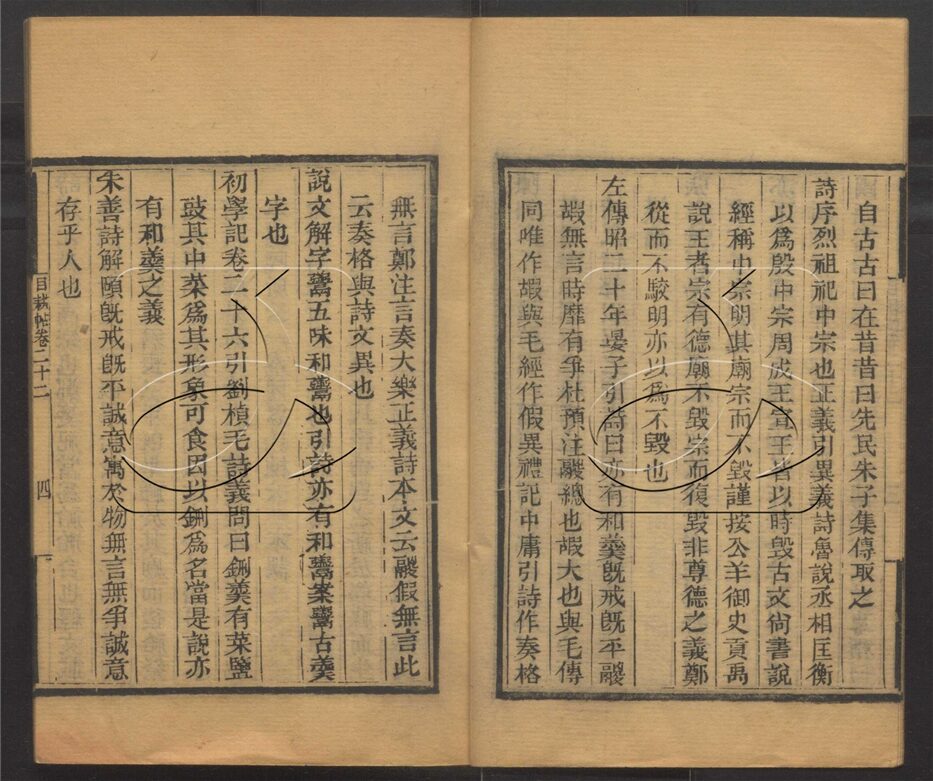 自古古曰在昔昔曰先民朱子集傳取之
詩序烈祖祀中宗也正義引異義詩魯說丞相匡衡
以爲殷中宗周成王宣王皆以時毀古文尙書說
經稱中宗明其廟宗而不毀謹按公羊御史貢禹
說王者宗有德廟不毀宗而復毀非尊德之義鄭
從而不駁明亦以爲不毀也
左傳昭二十年晏子引詩曰亦有和羹旣戒旣平鬷
嘏無言時靡有爭杜預注鬷總也嘏大也與毛傳
同唯作嘏與毛經作假異禮記中庸引詩作奏格
無言鄭注言奏大樂正義詩本文云鬷假無言此
云奏格與詩文異也
說文解字鬻五味和鬻也引詩亦有和鬻案鬻古羹
字也
初學記卷二十六引劉楨毛詩義問曰鉶羹有菜鹽
豉其中菜爲其形象可食因以鉶爲名當是說亦
有和羹之義
朱善詩解頤旣戒旣平誠意寓於物無言無爭誠意
存乎人也
目耕帖卷二十二
四